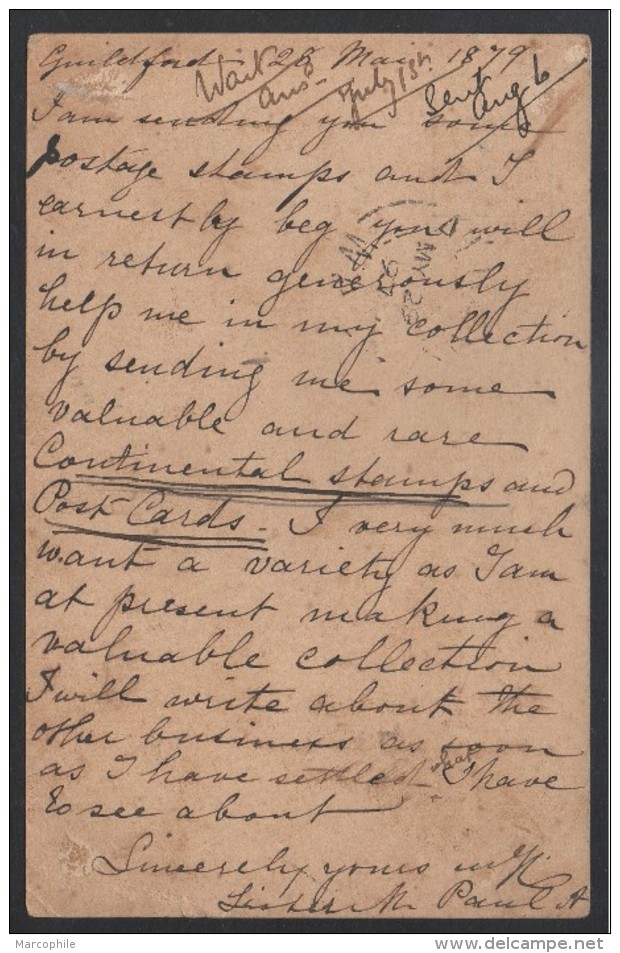 Guildford 28 Mai 1879
Wait
ans
July 18th
Sent
Aug 6
I am sending you some
postage stamps and I
earnestly beg you will
in return generously
help me in my collection
by sending me some
valuable and rare
Continental stamps and
Post Cards - I very much
want a variety as I am
at present making a
valuable collection
I will write about the
other business as soon
as I have settled what I have
to see about
Sincerely yours in
Sister M Paul
MY 28
79
Marcophile
www.delcampe.net